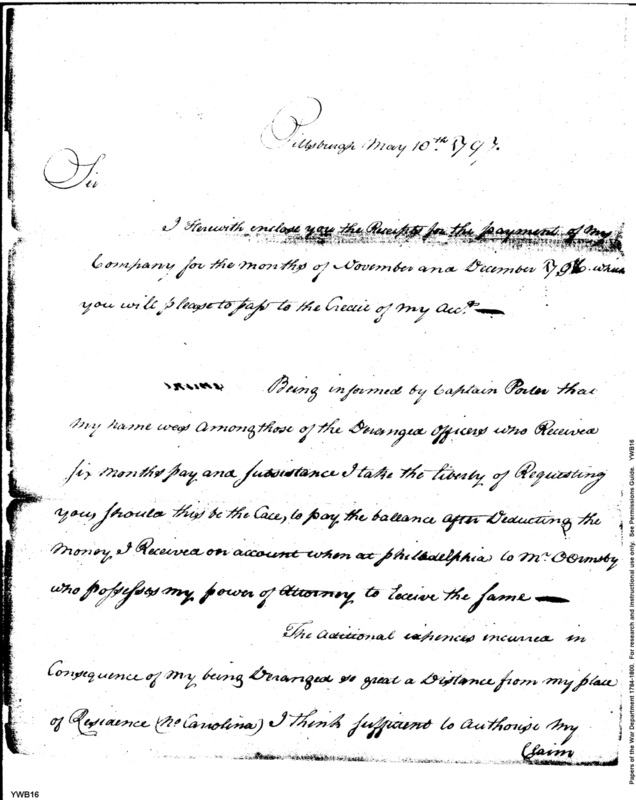 Pittsburgh May 10th 1797.
Sir
I Herewith enclose you the Receipts for the payment of My
Company for the months of November and December 1796. which
you will please to pass to the Credit of My Acct. —
Being informed by Captain Porter that
My name was Among those of the Deranged Officers who Received
six months pay and subsistance I take the liberty of Requesting
you, should this be the Case, to pay the ballance after Deducting the
Money I Received on account when at philadelphia to Mr. OOrmsby
who possesses my power of Attorney to receive the same —
The aditional expences incurred in
Consequence of My being Deranged so great a Distance from my place
of Residence (No Carolina) I think sufficent to Authorise My
Claim
Papers of the War Department 1784-1800. For research and instructional use only. See Permissions Guide. YWB16
YWB16